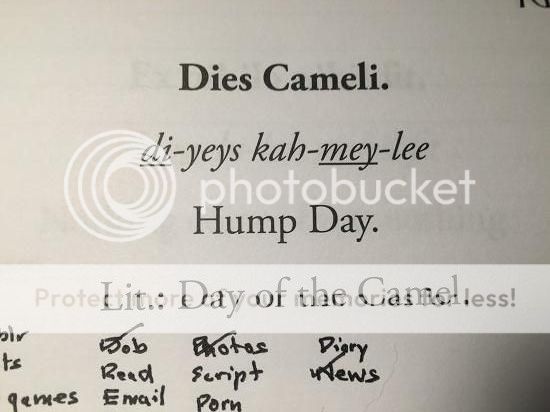 Dies Cameli.
di-yeys kah-mey-lee
photobucket
Hump Day.
Lit.: Day of the Camel.
Protect more of your memories for less!
blr Job Photos Diary
ts Read Script News
games Email Porn